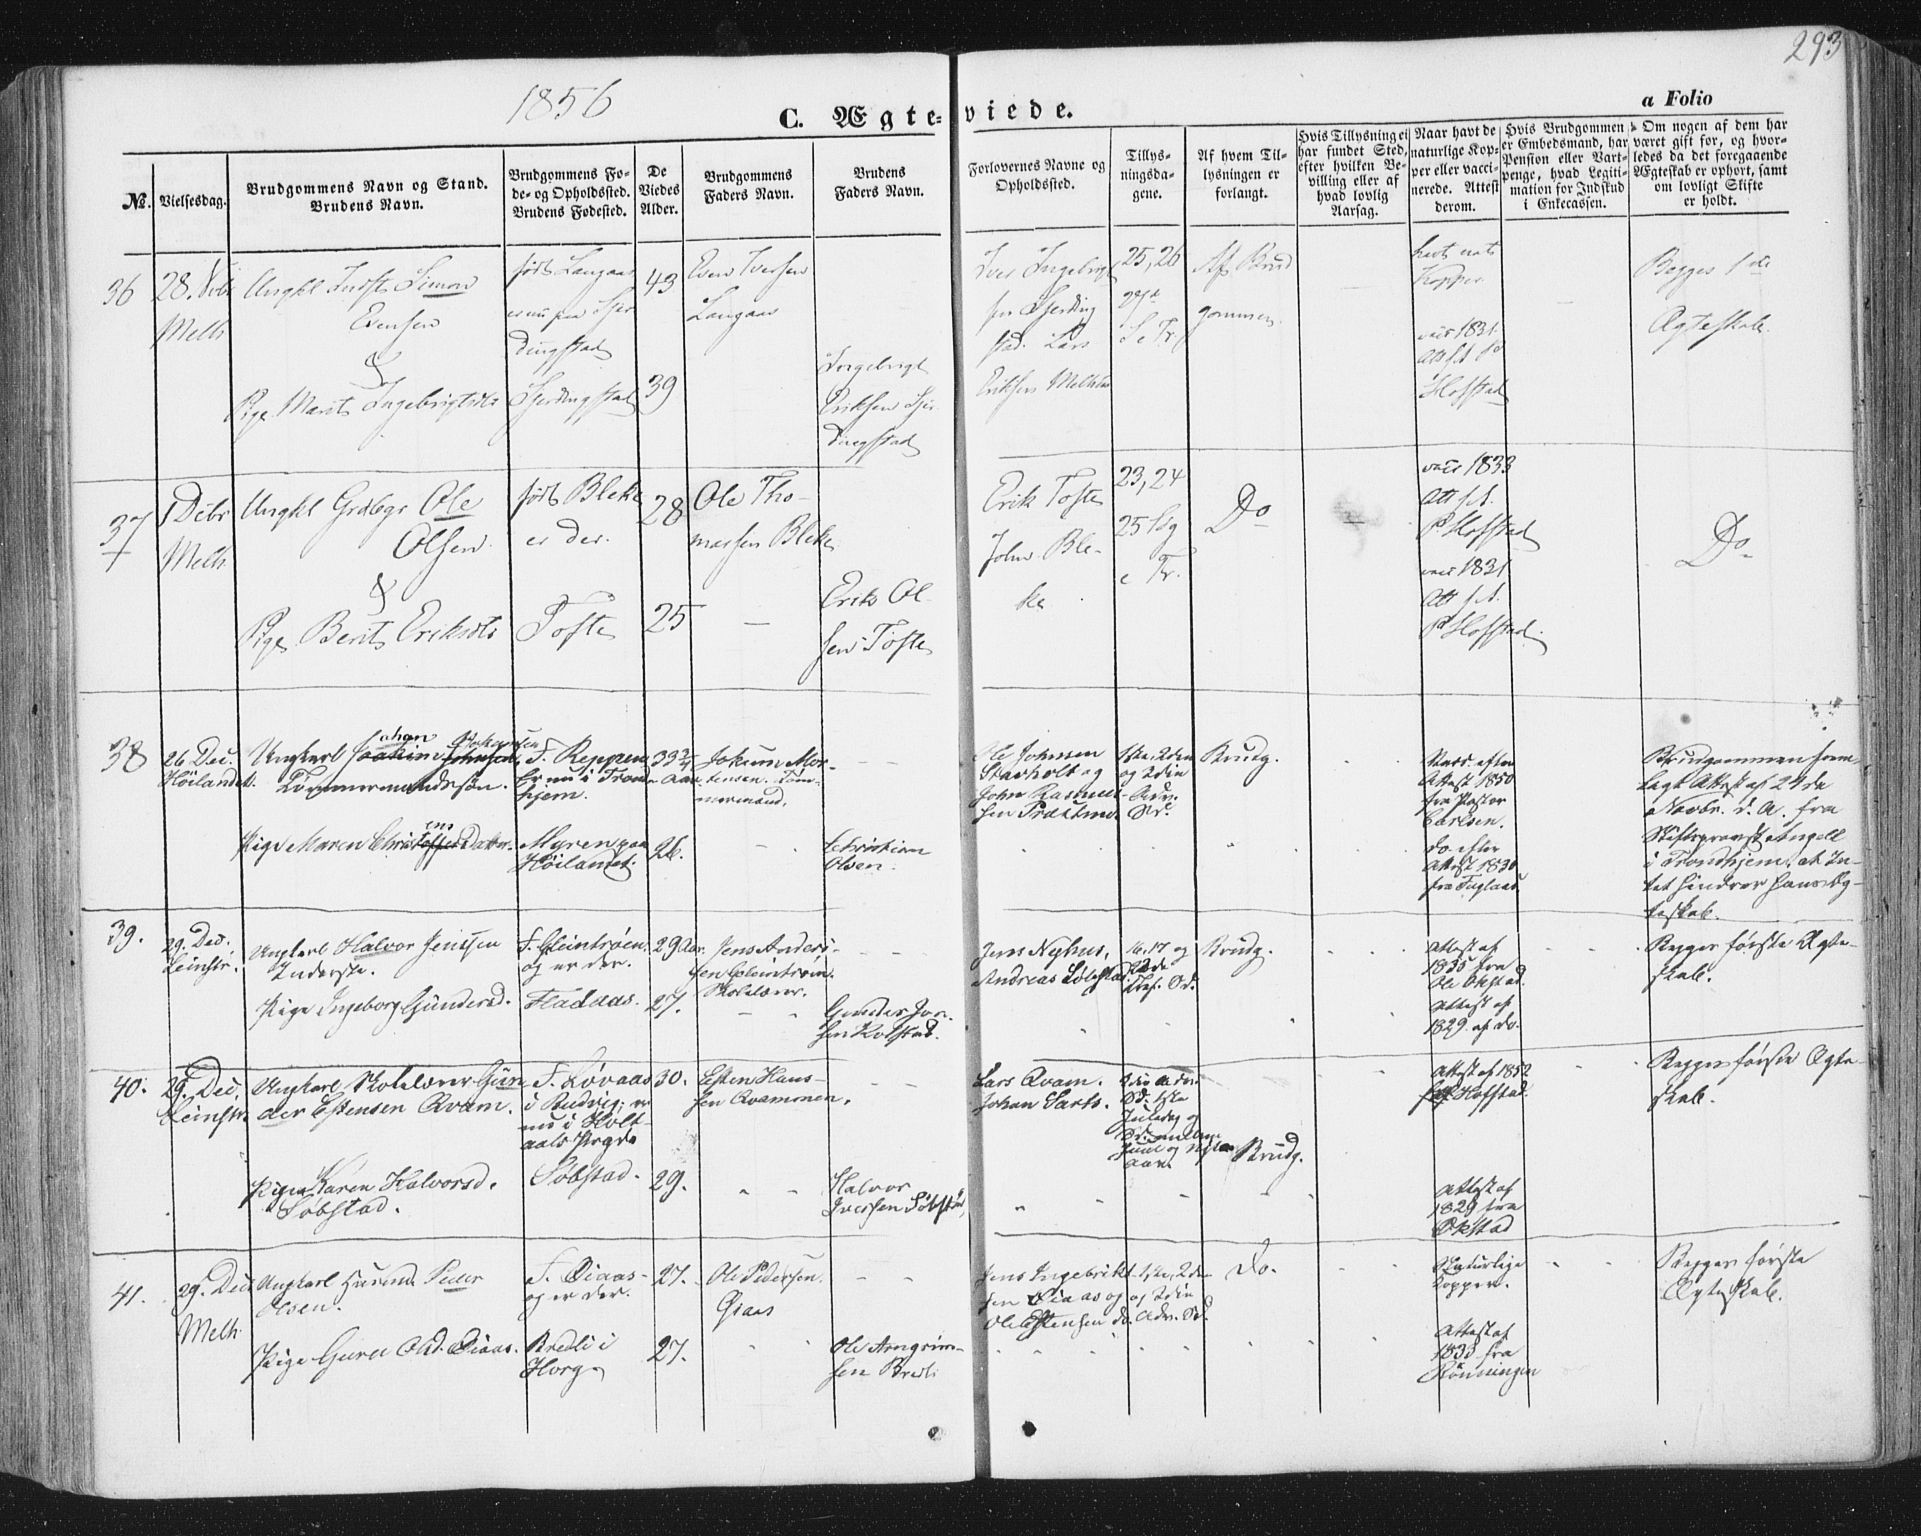 293
1856
C. Ægteviede.
a Folio
№.
Vielsesdag.
Brudgommens Navn og Stand.
Brudens Navn.
Brudgommens Fø-
de- og Opholdssted.
Brudens Fødested.
De
Viedes
Alder.
Brudgommens
Faders Navn.
Brudens
Faders Navn.
Forlovernes Navne og
Opholdssted.
Tillys-
ningsda-
gene.
Af hvem Til-
lysningen er
forlangt.
Hvis Tillysning ei
har fundet Sted,
efter hvilken Be-
villing eller af
hvad lovlig
Aarsag.
Naar havt de
naturlige Kop-
per eller vacci-
nerede. Attest
derom.
Hvis Brudgommen
er Embedsmand, har
Pension eller Vart-
penge, hvad Legiti-
mation for Indskud
i Enkecassen.
Om nogen af dem har
været gift før, og hvor-
ledes da det foregaaende
Ægteskab er ophørt, samt
om lovligt Skifte
er holdt.
36
28.
Melh
Ungkl Simon
Evensen
&
Pige Marit Ingebrigtsdtr
født Langaas
er nu paa Gjer
dingstad
Gjerdingstad
43
39
Even Iversen
Langaas
Ingebrigt
Eriksen Gjer
dingstad
Iver Ingebrigt
sen Gjerding
stad. Lars
Eriksen Melhus
25, 26
27de
S e Tr.
Af Brud
gommen
havt nat
Kopper
vacc 1831
Att f. A.
Hofstad
Begges 1ste
Ægteskab.
37
1 Decbr
Melh
Ungkl Grdbgr Ole
Olsen
&
Pige Berit Eriksdtr
født Bleke
er der.
Tofte
28
25
Ole Tho-
massen Bleke
—
Erik Ol-
sen Tofte
Erik Tofte
John Ble-
ke
23, 24
25 Sg
e Tr.
Do
—
vacc 1833
Att f. A.
P Hofstad
vacc 1831
Att f. A.
P Hofstad.
Do
38
26 Dec.
Höilandet.
Ungkarl Johan Johansen
Tømmermand
F. Reppen
Er nu i Trond-
hjem.
33 3/4
Aar
Jokum Mor-
tensen. Tøm-
mermand.
Pige Maren Christensdatter.
Myren paa
Höilandet.
26.
Christian
Olsen.
Ole Johnsen
Stavholt og
John Rasmus-
sen
1ste, 2den
og 3die
Adv.
Sd.
Brudg.
Vacc. efter
Attest 1850
fra Pastor
Carlsen.
do. efter
Attest 1830
fra Fuglaas.
Brudgommen frem-
lagt Attest af 24de
Novbr. d. A. fra
Stiftsprovst Angell
i Trondhjem, at In-
tet hindrer hans Æg-
teskab.
39.
29. Dec.
Leinstr.
Ungkarl Halvor Jenssen
Inderste.
Pige Ingeborg Gundersd.
og er der.
Fladaas.
29 Aar.
27.
Jens Anders-
sen
Skolelærer.
Gunder Jon-
sen Kolstad.
Jens Nyhus,
Andreas
16. 17 og
22de
Tref. Sd.
Brudg.
Attest af
1835 fra
Ole Økstad.
Attest af
1829 af do.
Begges første Ægte-
skab.
40.
29. Dec.
Leinstr.
Ungkarl Skolelærer Gun
der Estensen Qvam.
F. Løvaas
i Budvig; er
nu i Holt-
aals Prgd.
30.
Esten Hans-
sen Qvammen.
Pige Karen Halvorsd.
Söbstad.
Söbstad.
29.
Halvor
Iverssen Söbstad,
Lars Qvam.
Johan Sarts.
3die Adv.
Sd. 1ste
Juledag og
Sd. mellem
Juul og Nyt
aar.
Brudg.
Attest af 1852
fra Hofstad.
Attest af
1829 fra
Økstad
Begges første Ægte
skab.
41.
29. Dec
Melh
Ungkarl Huusmd Peder
Olsen.
F. Qiaas-
og er der.
27.
Ole Pedersen
Qiaas
Pige Guru Olsd. Qiaas.
Bredli i
Horg.
27.
Ole Arngrim-
sen Bredli
Jens Ingebrikt-
sen Qiaas og
Ole Estensen do.
1ste, 2den
og 3die
Adv. Sd.
Do.
Naturlige
Kopper.
Attest af
1833 fra
Rönningen
Begges første
Ægteskab.